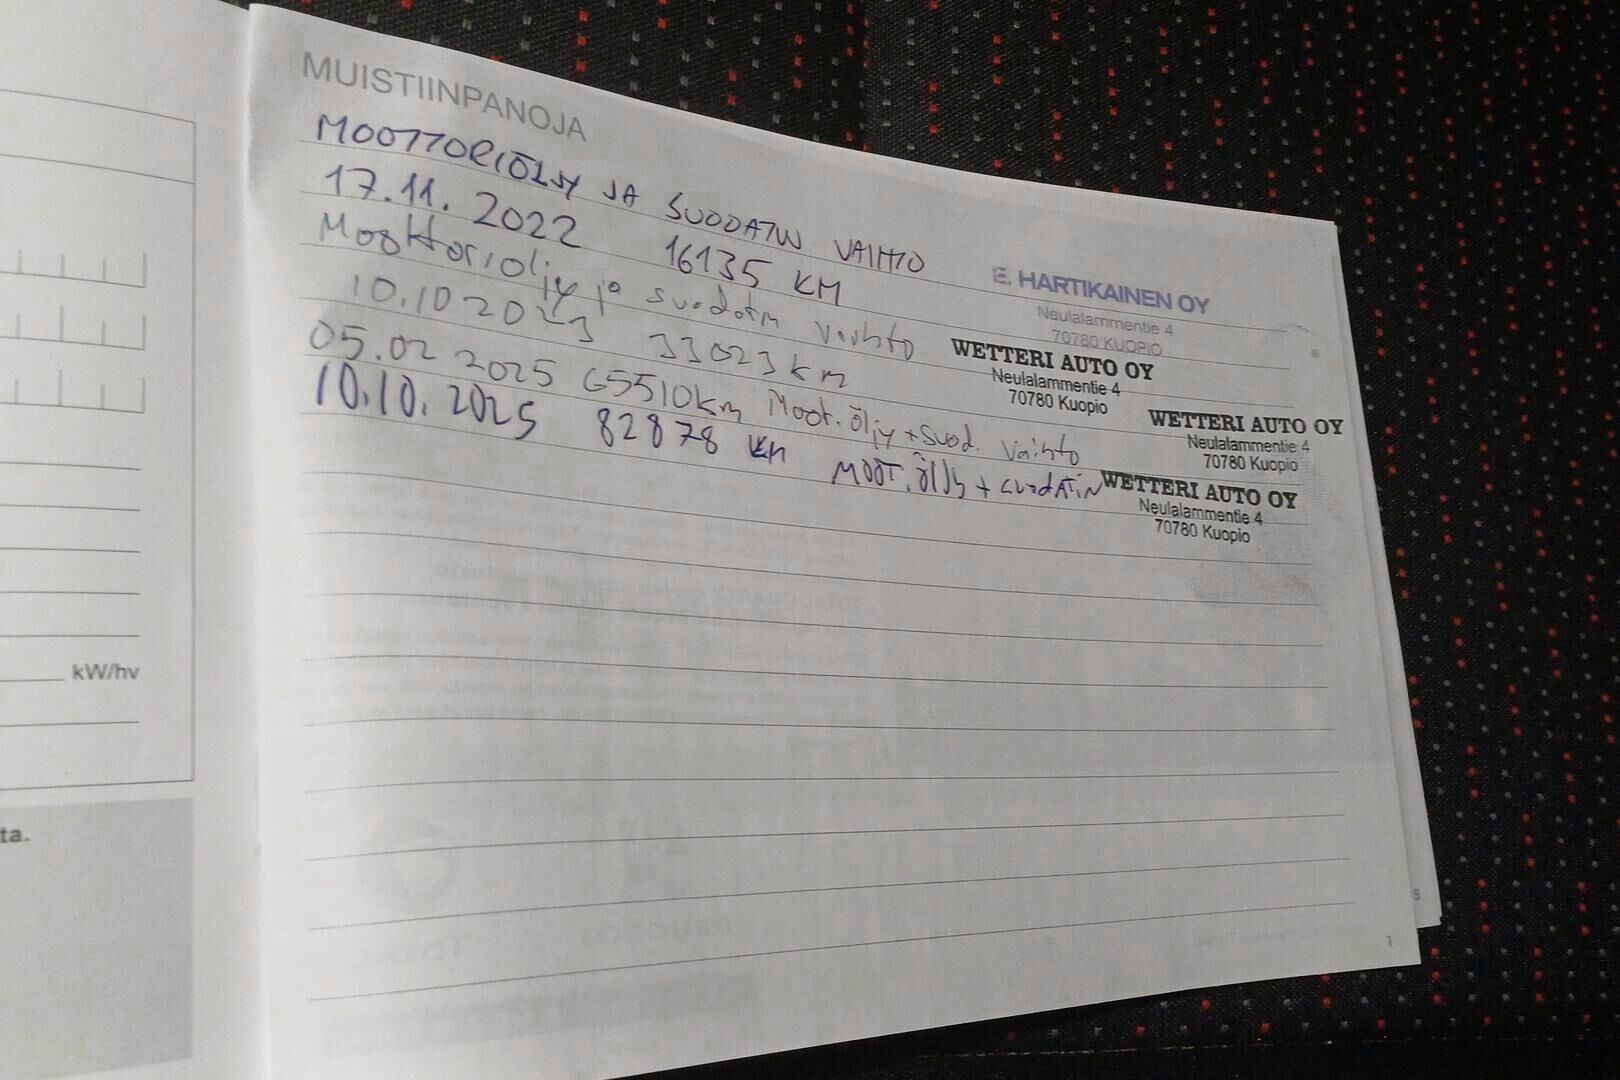 MUISTIINPANOJA
MOOTTORIÖLJY JA SUODATIN VAIHTO
17.11. 2022 16135 KM
E. HARTIKAINEN OY
Neulalammentie 4
70780 KUOPIO
Moottoriöljy ja suodatin vaihto
10.10 2023 33023 km
WETTERI AUTO OY
Neulalammentie 4
70780 Kuopio
05.02 2025 65510km Moot. öljy + suod. vaihto
WETTERI AUTO OY
Neulalammentie 4
70780 Kuopio
10.10. 2025 82878 KM MOOT. ÖLJY + suodATiN
WETTERI AUTO OY
Neulalammentie 4
70780 Kuopio
kW/hv
ta.
5
1